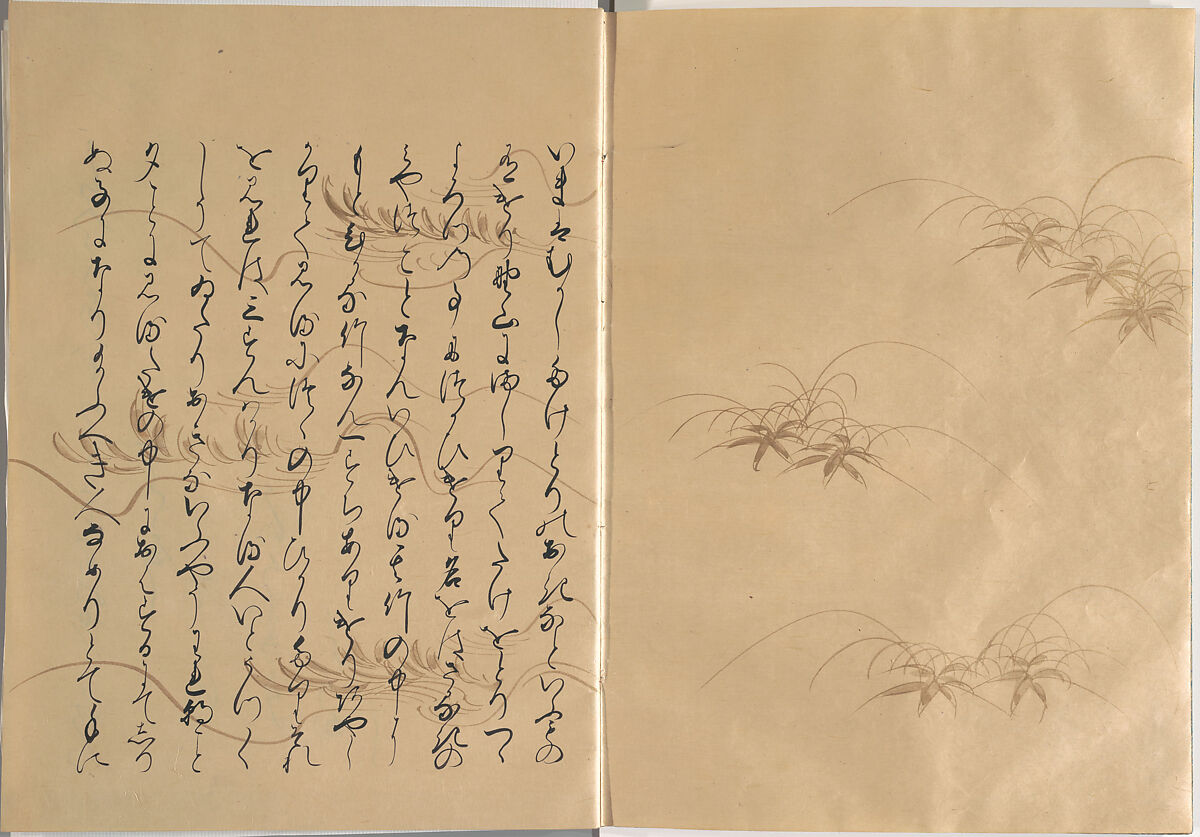 いまはむかしたけとりのおきなといふもの
有けり野山にましりてたけをとりつゝ
よろつの事につかひけり名をはさるきの
みやつことなんいひける其竹の中に
もとひかる竹なん一すちありけりあやし
かりてみるにつゝの中ひかりたりそれ
をみれは三すんはかりなる人いとうつく
しうてゐたりおきないふやうわれ朝こと
夕ことにみるたけの中におはするにてしり
ぬ子になり給ふへき人なめりとて手に